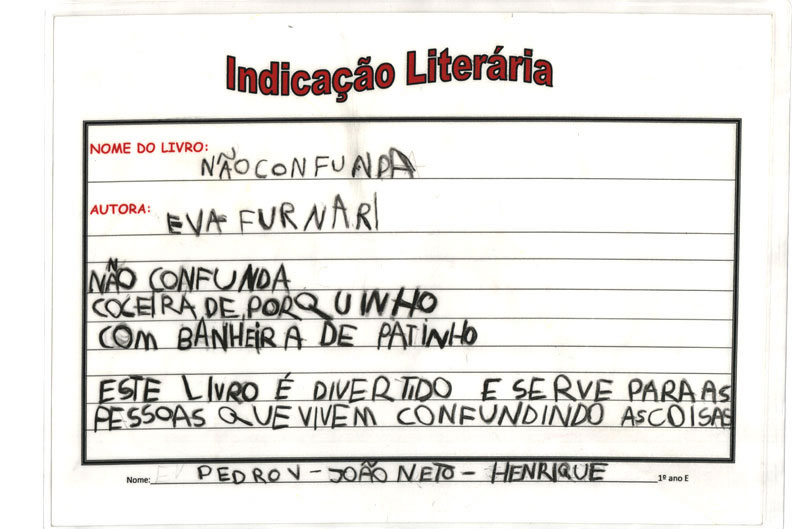 Indicação Literária
NOME DO LIVRO: NÃO CONFUNDA
AUTORA: EVA FURNARI
NÃO CONFUNDA
COCEIRA DE PORQUINHO
COM BANHEIRA DE PATINHO
ESTE LIVRO É DIVERTIDO E SERVE PARA AS
PESSOAS QUE VIVEM CONFUNDINDO AS COISAS
Nome: PEDRO V - JOÃO NETO - HENRIQUE 1º ano E